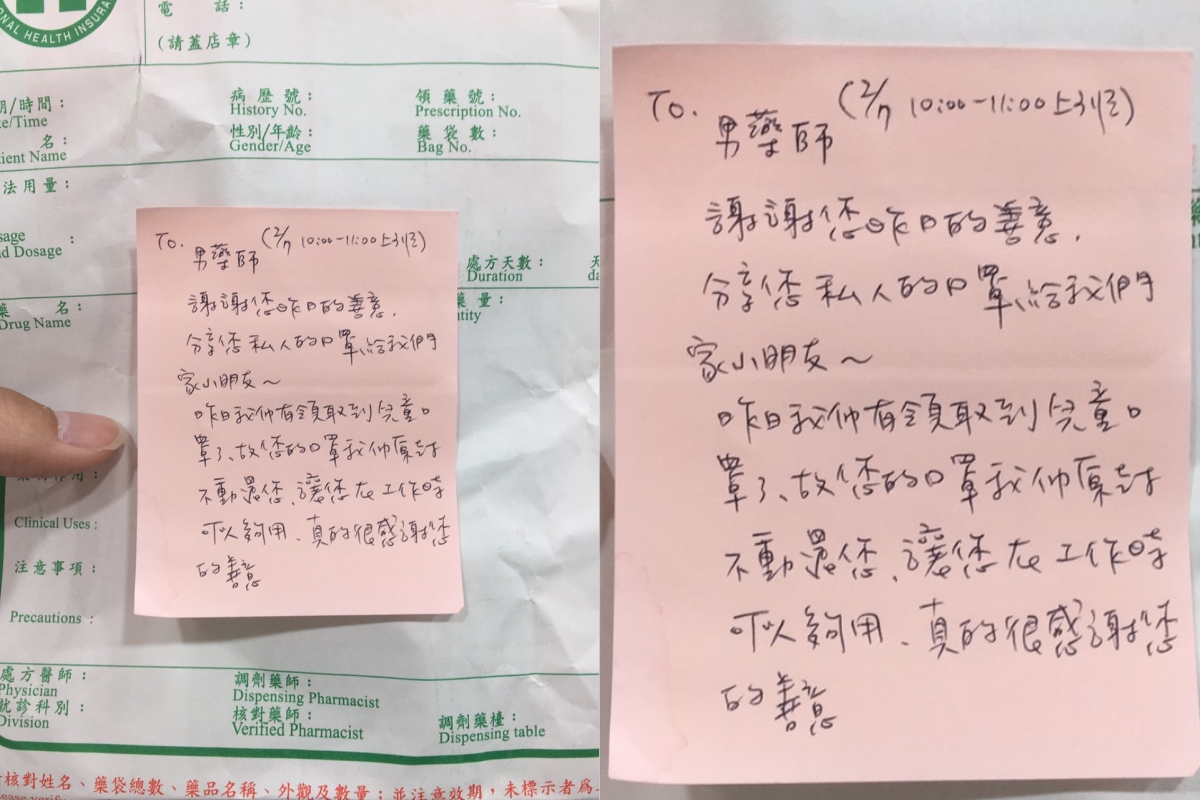 NAL HEALTH INSURA
電話：
(請蓋店章)
期/時間：
te/Time
病歷號：
History No.
領藥號：
Prescription No.
名：
tient Name
性別/年齡：
Gender/Age
藥袋數：
Bag No.
法用量：
sage
nd Dosage
：
處方天數：
Duration
天
da
藥名：
Drug Name
藥量：
ntity
Clinical Uses :
注意事項：
Precautions :
處方醫師：
Physician
就診科別：
Division
調劑藥師：
Dispensing Pharmacist
核對藥師：
Verified Pharmacist
調劑藥檯：
Dispensing table
核對姓名、藥袋總數、藥品名稱、外觀及數量；並注意效期，未標示者為
To. 男藥師 (2/7 10:00-11:00上班)
謝謝您昨日的善意，
分享您私人的口罩、給我們
家小朋友～
昨日我們有領取到兒童口
罩了、故您的口罩我們原封
不動還您、讓您在工作時
可以夠用、真的很感謝您
的善意
To. 男藥師 (2/7 10:00-11:00上班)
謝謝您昨日的善意，
分享您私人的口罩、給我們
家小朋友～
昨日我們有領取到兒童口
罩了、故您的口罩我們原封
不動還您、讓您在工作時
可以夠用、真的很感謝您
的善意